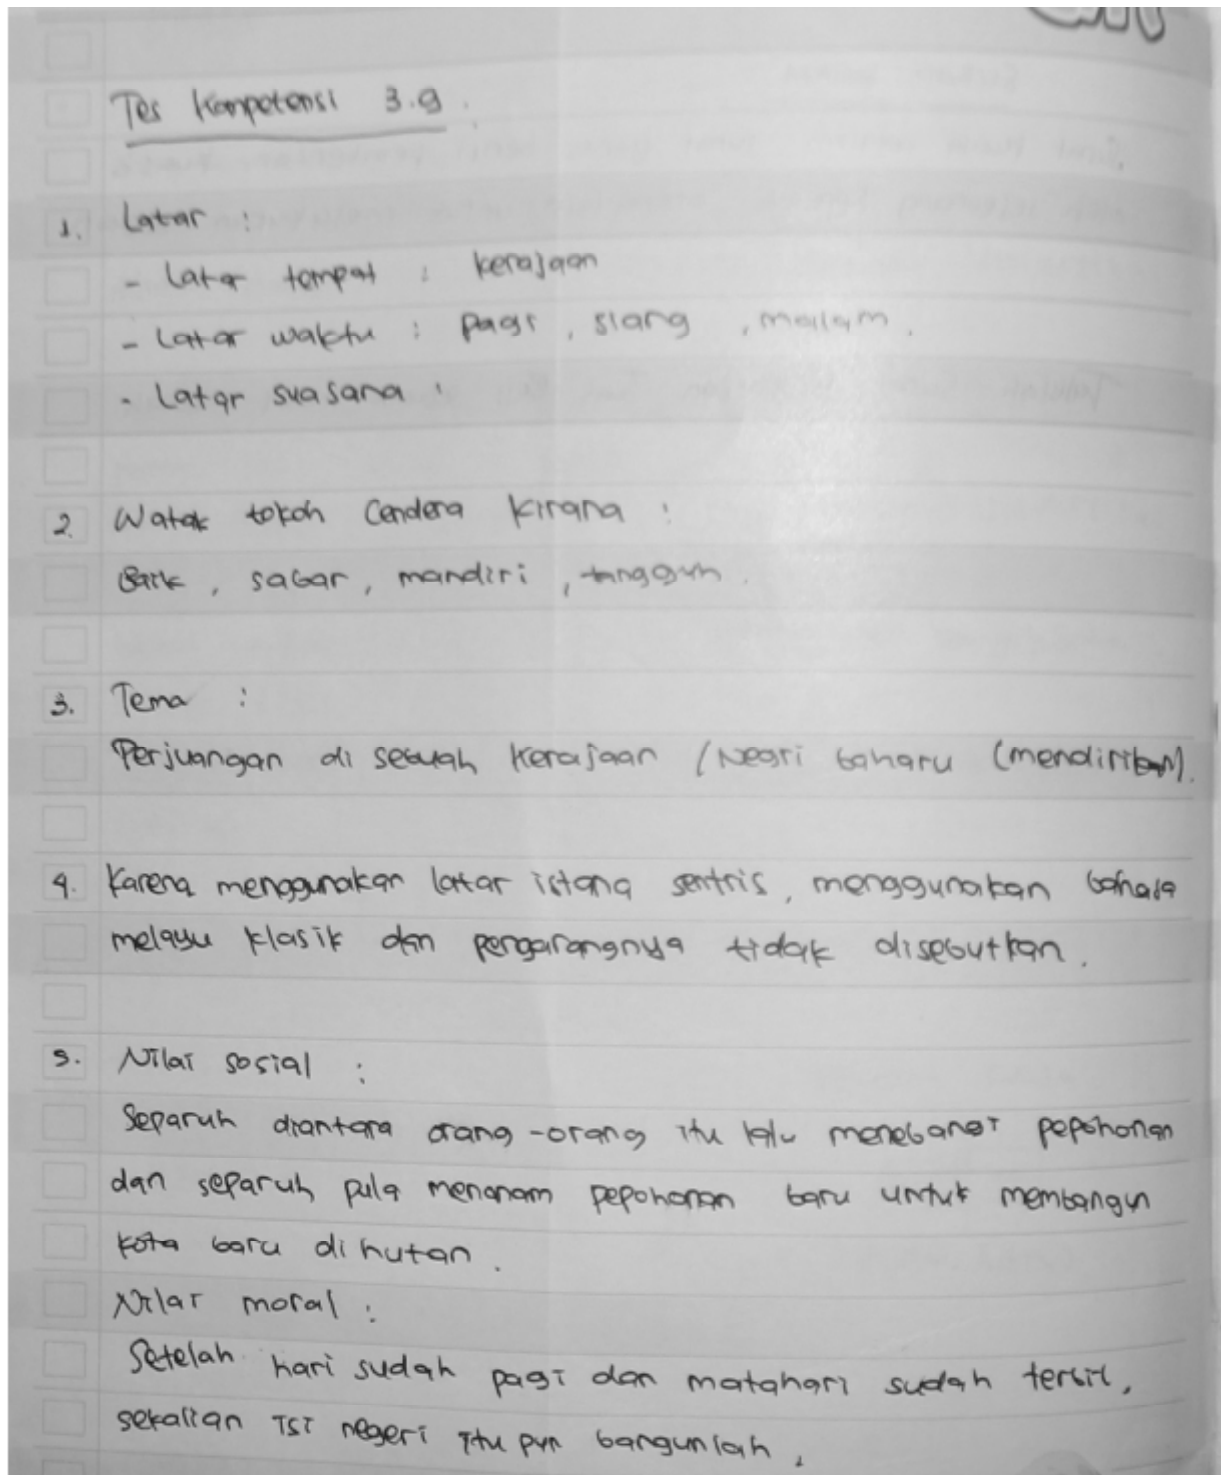 Tes Kompetensi 3.9.
1. Latar :
- Latar tempat : kerajaan
- Latar waktu : pagi, siang, malam.
- Latar suasana :
2. Watak tokoh Candera Kirana :
Baik, sabar, mandiri, tangguh.
3. Tema :
Perjuangan di sebuah kerajaan / Negri baharu (mendirikan).
4. Karena menggunakan latar istana sentris, menggunakan bahasa
melayu klasik dan pengarangnya tidak disebutkan.
5. Nilai sosial :
Separuh diantara orang-orang itu lalu menebangi pepohonan
dan separuh pula menanam pepohonan baru untuk membangun
kota baru di hutan.
Nilai moral :
Setelah hari sudah pagi dan matahari sudah terbit,
sekalian isi negeri itu pun bangunlah,